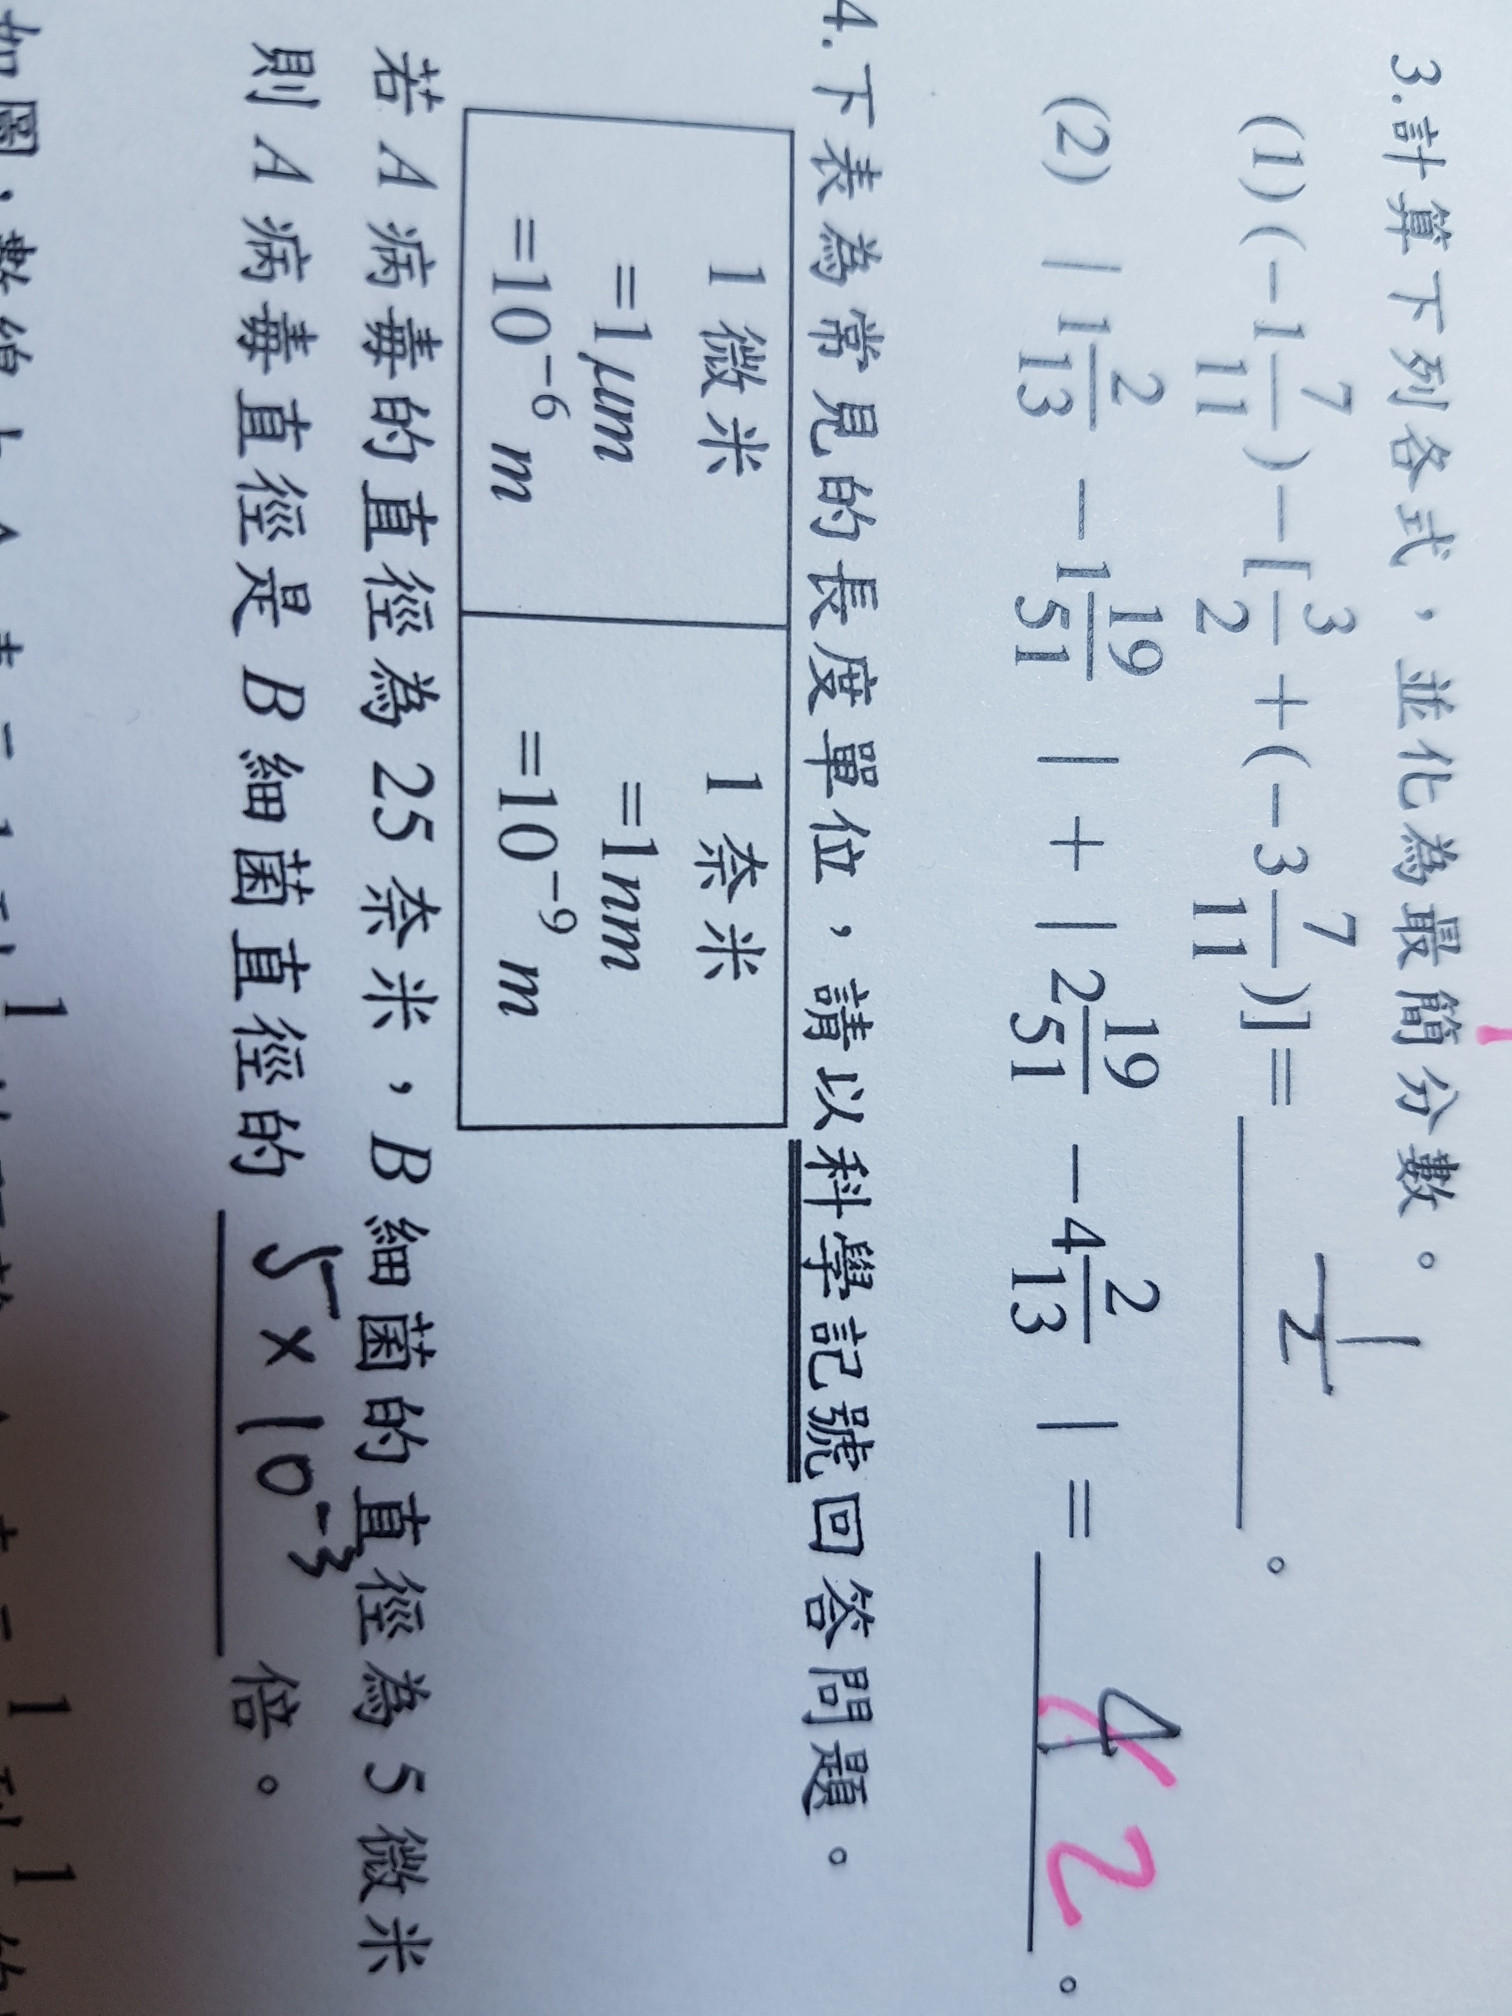 3.計算下列各式，並化為最簡分數。
(1)(-1 7/11)-[3/2+(-3 7/11)]= 1/2 。
(2) |1 2/13 -1 19/51|+|2 19/51 -4 2/13|= 4 2 。
4.下表為常見的長度單位，請以科學記號回答問題。
1微米 1奈米
=1μm =1nm
=10⁻⁶ m =10⁻⁹ m
若A病毒的直徑為25奈米，B細菌的直徑為5微米
則A病毒直徑是B細菌直徑的 5×10⁻³ 倍。